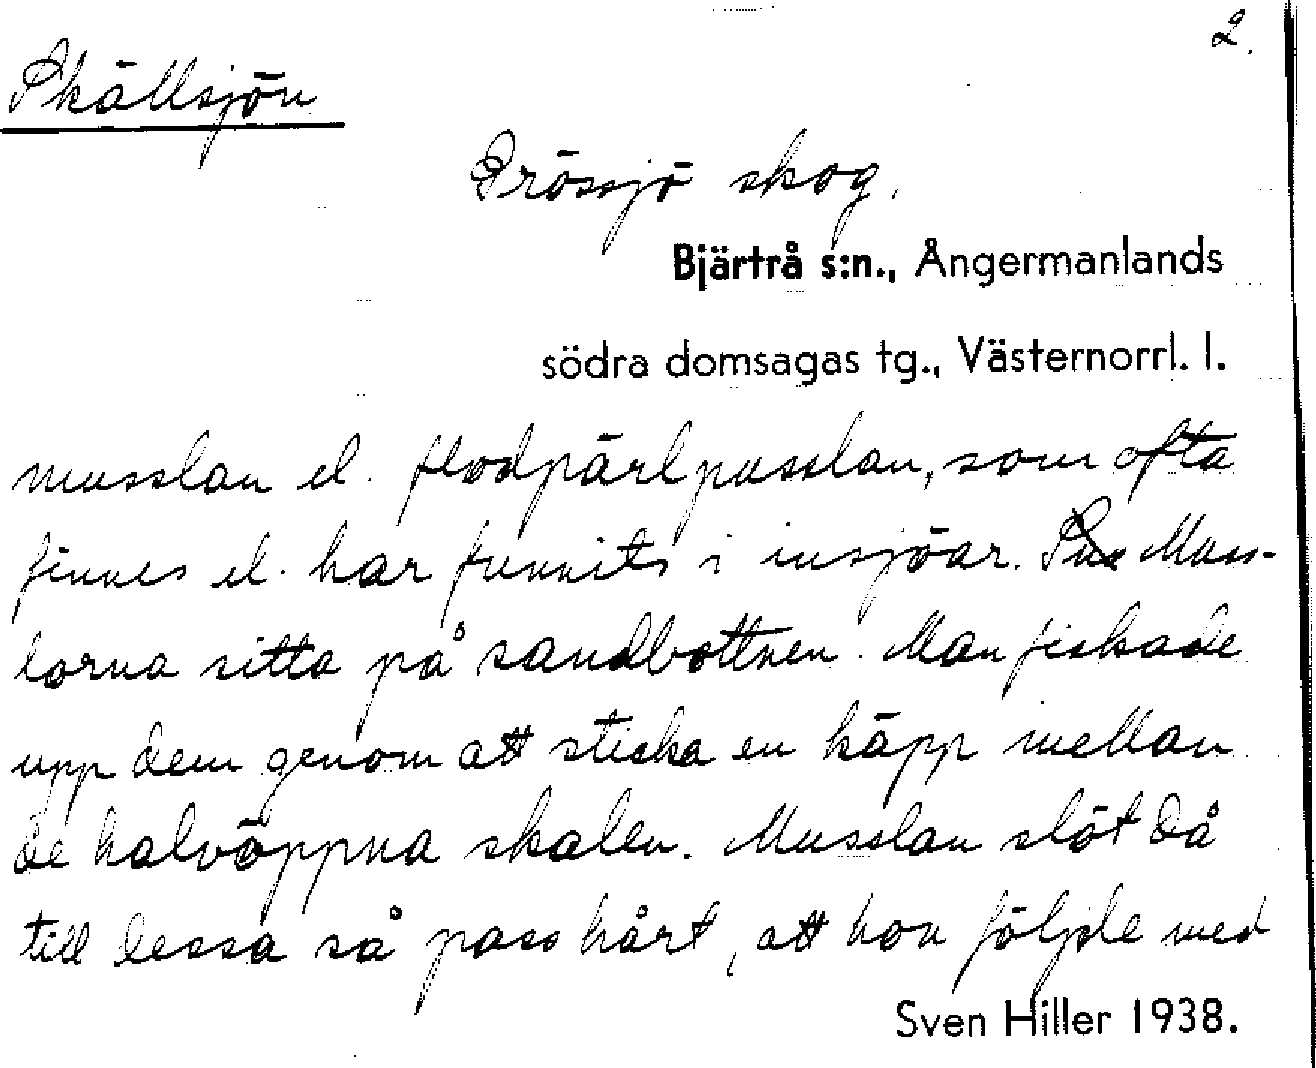 2.
Skällsjön
Prössjö skog.
Bjärtrå s:n., Ångermanlands
södra domsagas tg., Västernorrl. l.
musslan el. flodpärlmusslan, som ofta
finnes el. har funnits i insjöar. Muss-
lorna sitta på sandbottnen. Man fiskade
upp dem genom att sticka en käpp mellan
de halvöppna skalen. Musslan slöt då
till dessa så pass hårt, att hon följde med
Sven Hiller 1938.